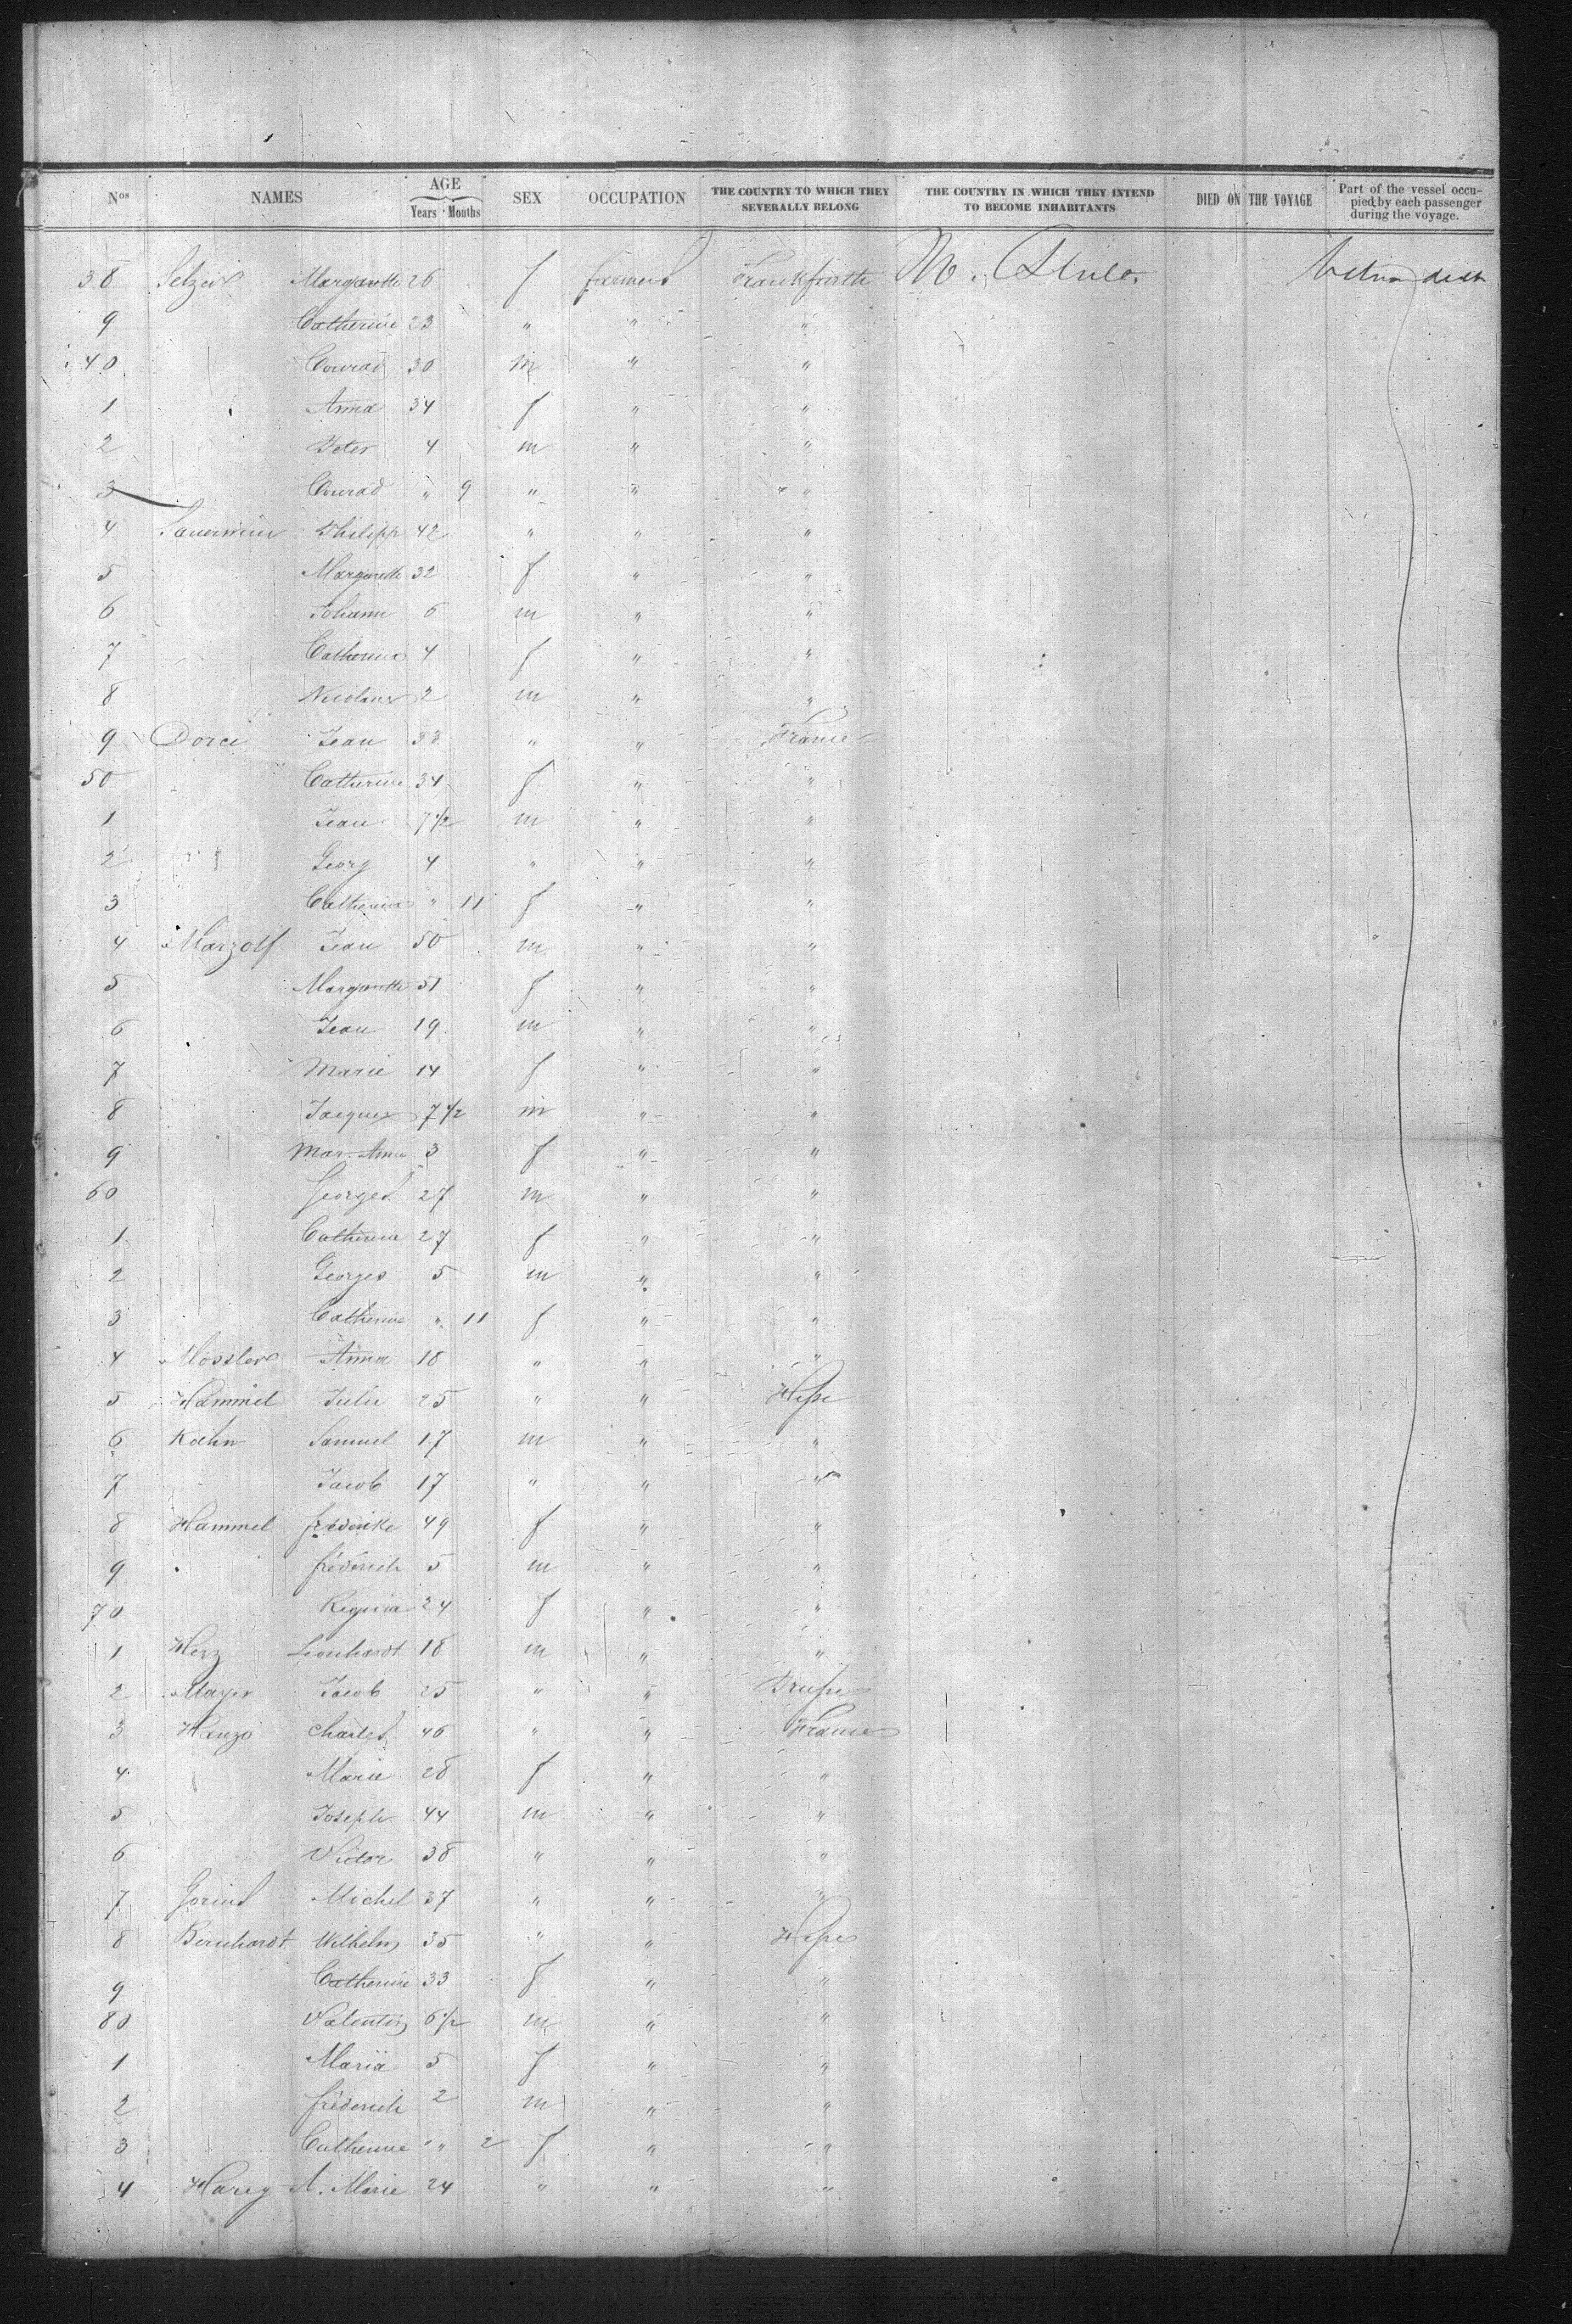 Nos NAMES AGE Years Months SEX OCCUPATION THE COUNTRY TO WHICH THEY SEVERALLY BELONG THE COUNTRY IN WHICH THEY INTEND TO BECOME INHABITANTS DIED ON THE VOYAGE Part of the vessel occupied by each passenger during the voyage.
38 Margarethe 26 f farmers
9 Catherine 23 " " "
40 Conrad 30 m " "
1 Anna 34 f " "
2 Peter 4 m " "
3 Conrad " 9 " " " "
4 Philipp 42 " " "
5 Margarethe 32 f " "
6 Johann 6 m " "
7 Catherina 4 f " "
8 Nicolaus 2 m " "
9 Dorci Jean 33 " " France
50 Catherine 34 f " "
1 Jean 7 1/2 m " "
2 Georg 4 " " "
3 Catherina " 11 f " "
4 Marzolf Jean 50 m " "
5 Margarethe 51 f " "
6 Jean 19 m " "
7 Marie 14 f " "
8 Jacques 7 1/2 m " "
9 Mar. Anna 3 f " "
60 Georges 27 m " "
1 Catherina 27 f " "
2 Georges 5 m " "
3 Catherine " 11 f " "
4 Mossler Anna 18 " " "
5 Hammel Julie 25 " " Hesse
6 Koehn Samuel 17 m " "
7 Jacob 17 " " "
8 Hammel frederike 49 f " "
9 frederich 5 m " "
70 Regina 24 f " "
1 Herz Leonhardt 18 m " "
2 Mayer Jacob 25 " " Prusse
3 Charles 46 " " France
4 Marie 28 f " "
5 Joseph 44 m " "
6 Victor 38 " " "
7 Michel 37 " " "
8 Bernhardt Wilhelm 35 " " Hesse
9 Catherine 33 f " "
80 Valentin 6 1/2 m " "
1 Maria 5 f " "
2 frederich 2 m " "
3 Catherine " " 2 f " "
4 Harig A. Marie 24 " " "